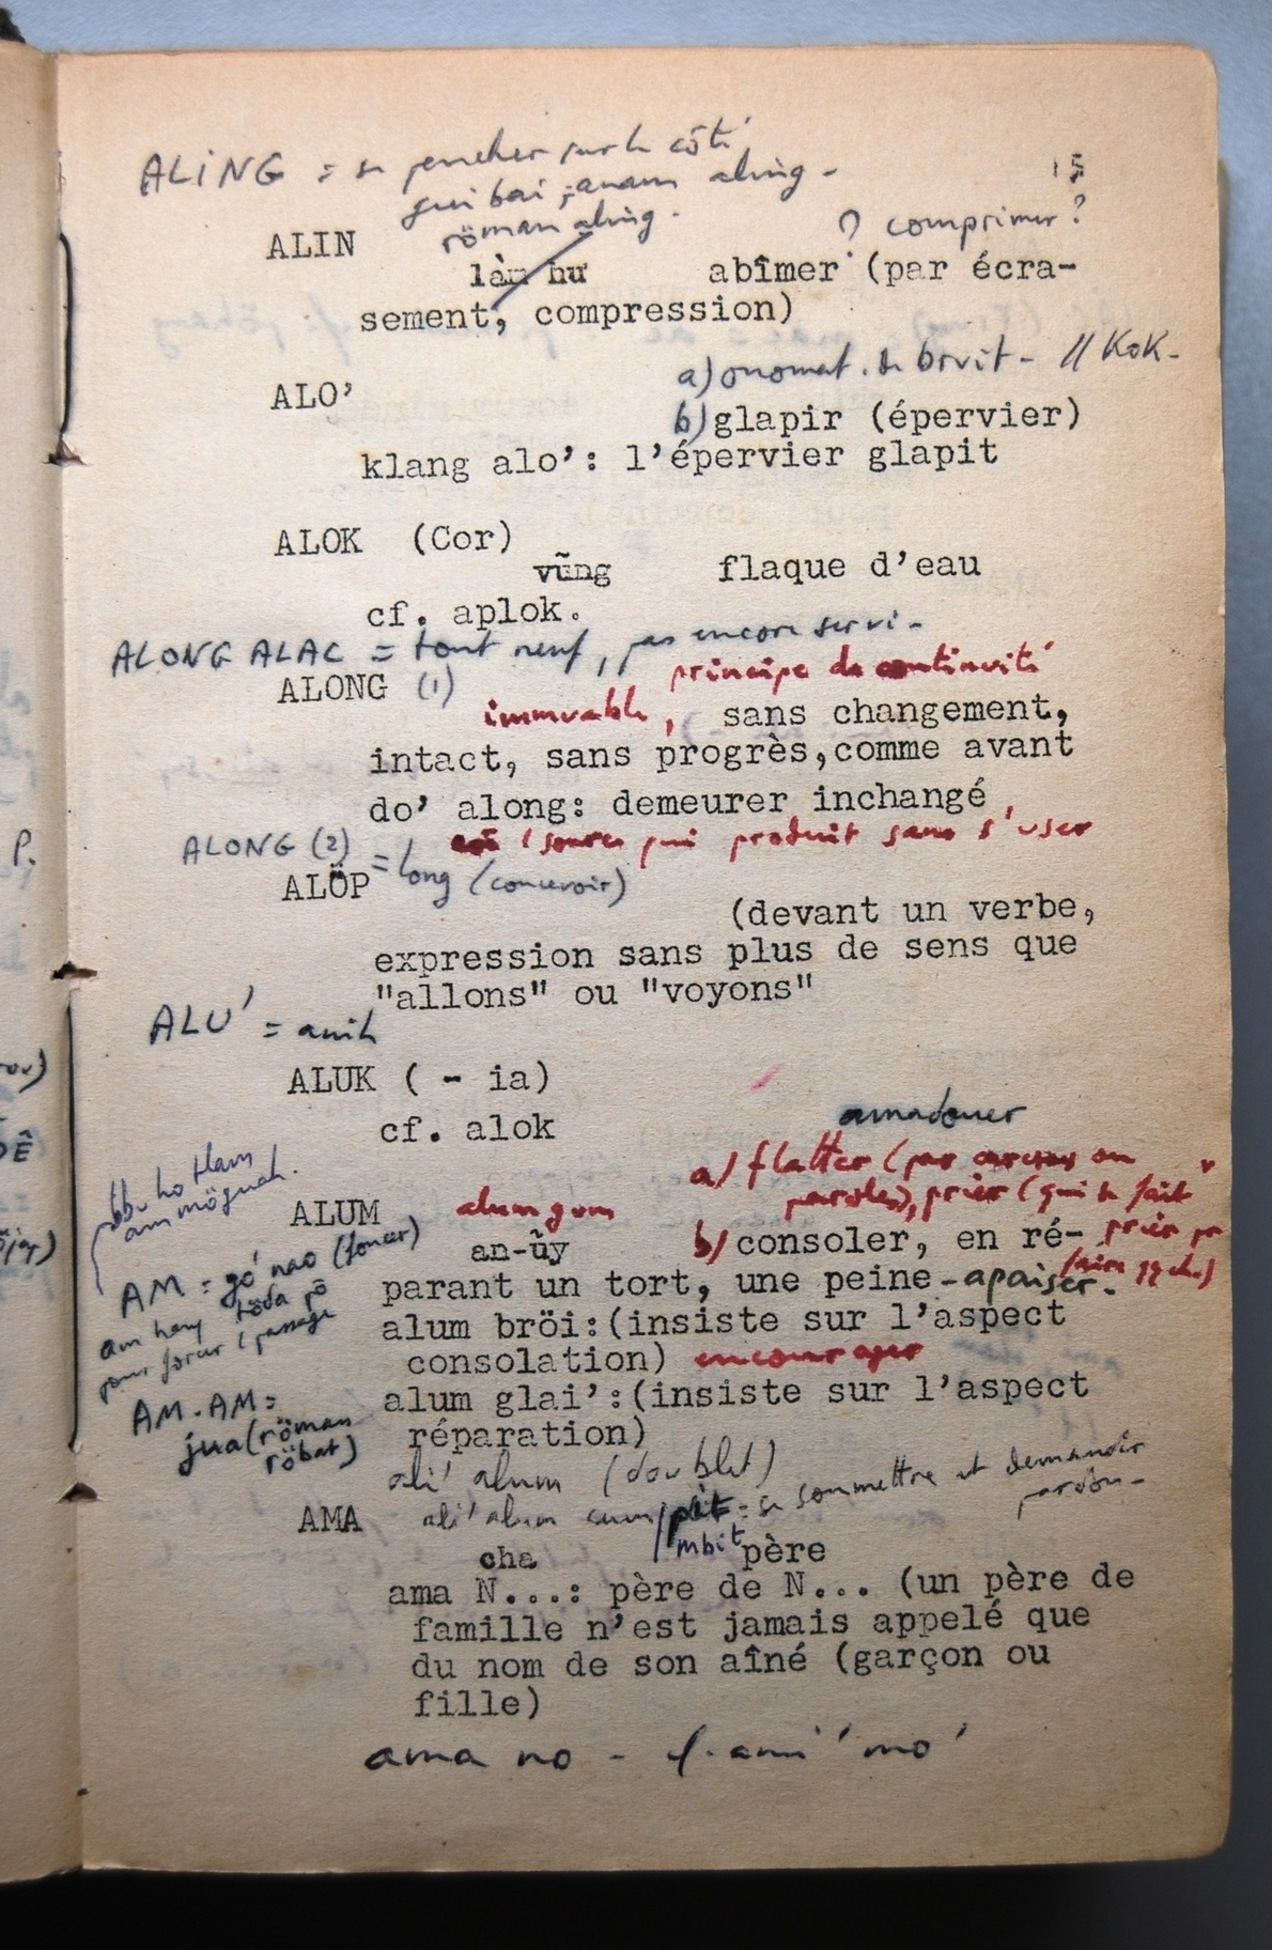 15
ALING = se pencher sur le côté
jui bai; anam aling -
röman aling.
ALIN
? comprimer?
làm hư abîmer (par écra-
sement, compression)
a) onomat. de bruit - // KOK -
ALO'
b) glapir (épervier)
klang alo': l'épervier glapit
ALOK (Cor)
vũng flaque d'eau
cf. aplok.
ALONG ALAC = tout neuf, pas encore servi -
principe de continuité
ALONG (1)
immuable, sans changement,
intact, sans progrès, comme avant
do' along: demeurer inchangé,
(source qui produit sans s'user
ALONG (2) = long (concevoir)
ALÖP
(devant un verbe,
expression sans plus de sens que
"allons" ou "voyons"
ALU' = anih
ALUK ( - ia)
cf. alok
amadouer
a) flatter (par caresses ou
paroles), prier (qui se fait
prier pr
faire qq ch.)
ALUM alum gum
an-ủy b) consoler, en ré-
parant un tort, une peine - apaiser.
alum bröi: (insiste sur l'aspect
consolation) encourager
alum glai': (insiste sur l'aspect
réparation)
ali' alum (doublet)
ali' alum = se soumettre et demander
pardon -
mbit
AM =
am
AM-AM =
jua (röman
röbat)
AMA
cha père
ama N...: père de N... (un père de
famille n'est jamais appelé que
du nom de son aîné (garçon ou
fille)
ama no -